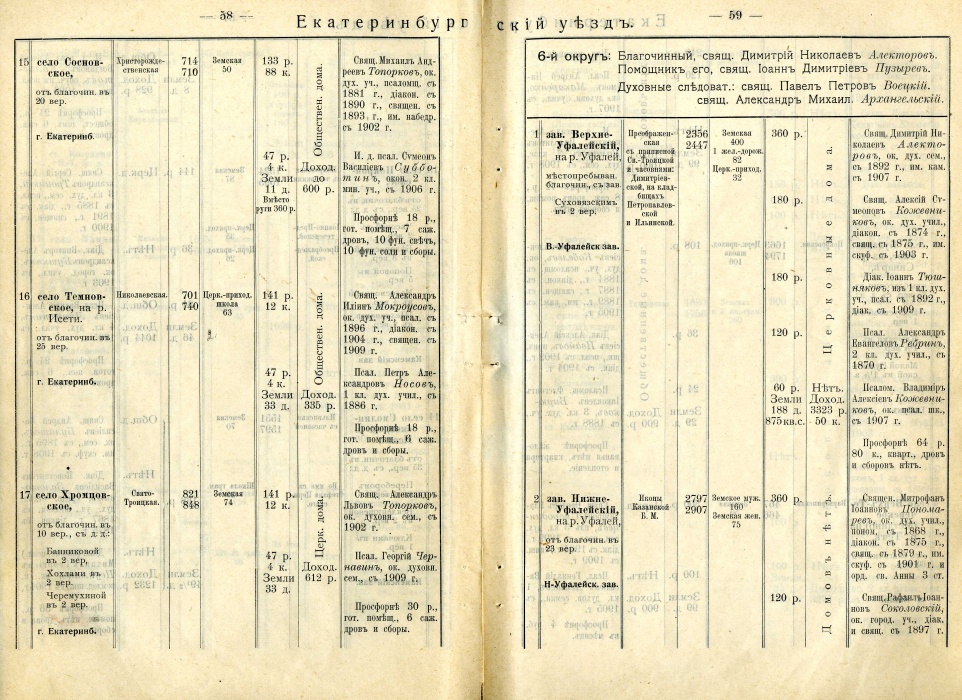 — 58 —
Екатеринбург
15
село Соснов-
ское,
отъ благочин. въ
20 вер.
г. Екатеринб.
Христорожде-
ственская
714
710
Земская
50
133 р.
88 к.
47 р.
4 к.
Земли
11 д.
Вмѣсто
руги 360 р.
Обществен. дома.
Доход.
до
600 р.
Свящ. Михаилъ Анд-
реевъ Топорковъ, ок.
дух. уч., псаломщ. съ
1881 г., діакон. съ
1890 г., священ. съ
1893 г., им. набедр.
съ 1902 г.
И. д. псал. Сѵмеонъ
Василіевъ Суббо-
тинъ, окон. 2 кл.
мин. уч., съ 1906 г.
Просфорнѣ 18 р.,
гот. помѣщ., 7 саж.
дровъ, 10 фун. свѣчъ,
10 фун. соли и сборы.
16
село Темнов-
ское, на р.
Исети.
отъ благочин. въ
25 вер.
г. Екатеринб.
Николаевская.
701
740
Церк.-приход.
школа
63
141 р.
12 к.
47 р.
4 к.
Земли
33 д.
Обществен. дома.
Доход.
335 р.
Свящ. Александръ
Иліинъ Мокроусовъ,
ок. дух. уч., псал. съ
1896 г., діакон. съ
1904 г., священ. съ
1909 г.
Псал. Петръ Але-
ксандровъ Носовъ,
1 кл. дух. учил., съ
1886 г.
Просфорнѣ 18 р.,
гот. помѣщ., 6 саж.
дровъ и сборы.
17
село Хромцов-
ское,
отъ благочин. въ
10 вер., съ д.д.:
Банниковой
въ 2 вер,
Хохлами въ
2 вер.
Черемухиной
въ 2 вер.
г. Екатеринб.
Свято-
Троицкая.
821
848
Земская
74
141 р.
12 к.
47 р.
4 к.
Земли
33 д.
Церк. дома.
Доход.
612 р.
Свящ. Александръ
Львовъ Топорковъ,
ок. духовн. сем., съ
1902 г.
Псал. Георгій Чер-
навинъ, ок. духовн.
сем., съ 1909 г.
Просфорнѣ 30 р.,
гот. помѣщ., 6 саж.
дровъ и сборы.
— 59 —
скій уѣздъ.
6-й округъ: Благочинный, свящ. Димитрій Николаевъ Алекторовъ.
Помощникъ его, свящ. Іоаннъ Димитріевъ Пузыревъ.
Духовные слѣдоват.: свящ. Павелъ Петровъ Воецкій.
свящ. Александръ Михаил. Архангельскій.
1
зав. Верхне-
Уфалейскій,
на р. Уфалей,
мѣстопребыван.
благочин., съ зав.
Суховязскимъ
въ 2 вер.
В.-Уфалейск зав.
Преображен-
ская
съ приписной
Св.-Троицкой
и часовнями:
Димитріев-
ской, на клад-
бищахъ
Петропавлов-
ской
и Ильинской.
2356
2447
Земская
400
1 жел.-дорож.
82
Церк.-приход.
32
360 р.
180 р.
180 р.
120 р.
60 р.
Земли
188 д.
875 кв.с.
Церковные дома.
Нѣтъ.
Доход.
3323 р.
50 к.
Свящ. Димитрій Ни-
колаевъ Алекто-
ровъ, ок. дух. сем.,
съ 1892 г., им. кам.
съ 1907 г.
Свящ. Алексій Сѵ-
меоновъ Кожевни-
ковъ, ок. дух. учил.,
діакон. съ 1874 г.,
свящ. съ 1875 г., им.
скуф. съ 1903 г.
Діак. Іоаннъ Тюш-
няковъ, изъ 1 кл. дух.
уч., псал. съ 1892 г.,
діак. съ 1909 г.
Псал. Александръ
Евангеловъ Ребринъ,
2 кл. дух. учил., съ
1870 г.
Псалом. Владиміръ
Алексіевъ Кожевни-
ковъ, ок. псал. шк.,
съ 1907 г.
Просфорнѣ 64 р.
80 к., кварт., дровъ
и сборовъ нѣтъ.
2
зав. Нижне-
Уфалейскій,
на р. Уфалей,
отъ благочин. въ
23 вер.
Н-Уфалейск. зав.
Иконы
Казанской
Б. М.
2797
2907
Земское муж.
160
Земская жен.
75
360 р.
120 р.
Домовъ нѣтъ.
Священ. Митрофанъ
Іоанновъ Понома-
ревъ, ок. дух. учил.,
поном. съ 1868 г.,
діакон. съ 1875 г.,
свящ. съ 1879 г., им.
скуф. съ 1901 г. и
орд. св. Анны 3 ст.
Свящ. Рафаилъ Іоан-
новъ Соколовскій,
ок. город. уч., діак.
и свящ. съ 1897 г.